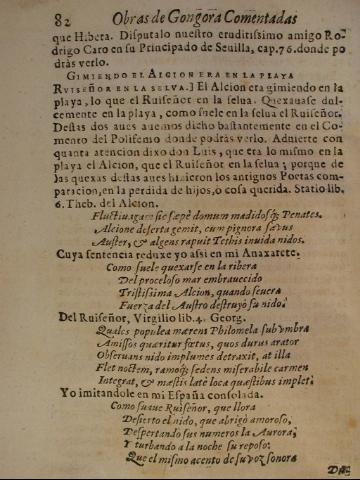 82 Obras de Gongora Comentadas
que H.beta. Disputalo nuestro eruditissimo amigo Ro-
drigo Caro en su Principado de Seuilla, cap.76. donde po
drás verlo.
GIMIENDO EL ALCION ERA EN LA PLAYA
RVISEÑOR EN LA SELVA.] El Alcion era gimiendo en la
playa, lo que el Ruiseñor en la selua. Quexauase dul-
cemente en la playa, como suele en la selua el Ruiseñor.
Destas dos aues auemos dicho bastantemente en el Co-
mento del Polifemo donde podrás verlo. Aduierte con
quanta atencion dixo don Luis, que era lo mismo en la
playa el Alcion, que el Ruiseñor en la selua; porque de
las quexas destas aues hizieron los antiguos Poetas com-
paracion, en la perdida de hijos, ò cosa querida. Statio lib.
6. Theb. del Alcion.
Fluctiuagam sic sæpè domum madidosq; Penates.
Alcione deserta gemit, cum pignora sæuus
Auster, & algens rapuit Tethis inuida nidos.
Cuya sentencia reduxe yo assi en mi Anaxarete.
Como suele quexarse en la ribera
Del proceloso mar embrauecido
Tristissima Alcion, quando seuera
Fuerza del Austro destruyò su nido.
Del Ruiseñor, Virgilio lib. 4. Georg.
Qualis populea mœrens Philomela sub vmbra
Amissos quæritur fœtus, quos durus arator
Obseruans nido implumes detraxit, at illa
Flet noctem, ramoq; sedens miserabile carmen
Integrat, & mæstis latè loca quæstibus implet.
Yo imitandole en mi España consolada.
Como suaue Ruiseñor, que llora
Desierto el nido, que abrigò amoroso,
Despertando sus numeros la Aurora,
Y turbando a la noche su reposo:
Que el mismo acento de su voz sonora